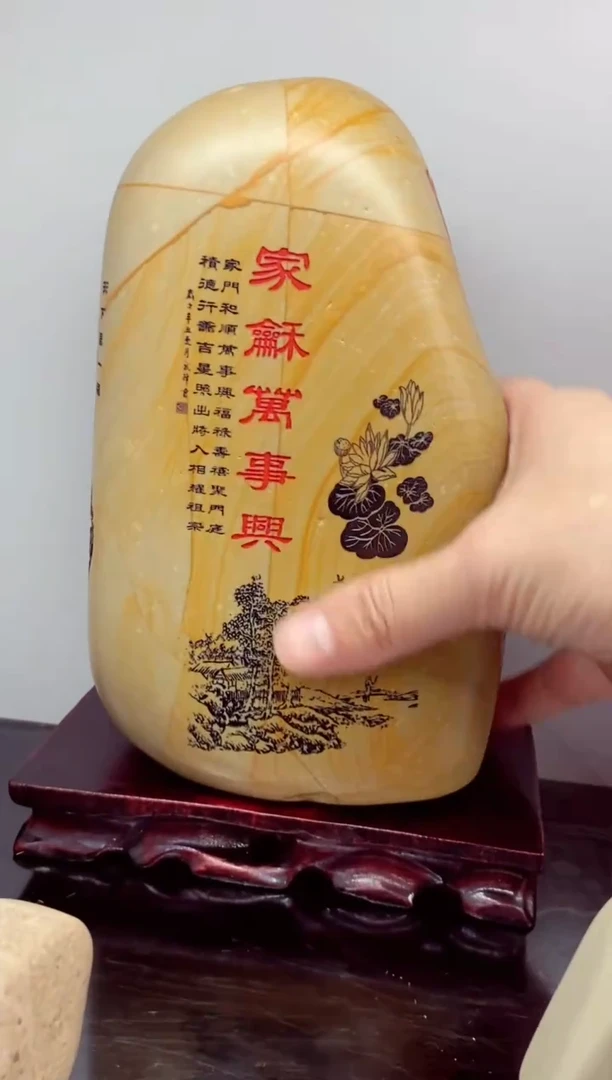 家龢萬事興
家門和順萬事興福祿壽禧聚門庭
積德行善吉星照出將入相耀祖榮